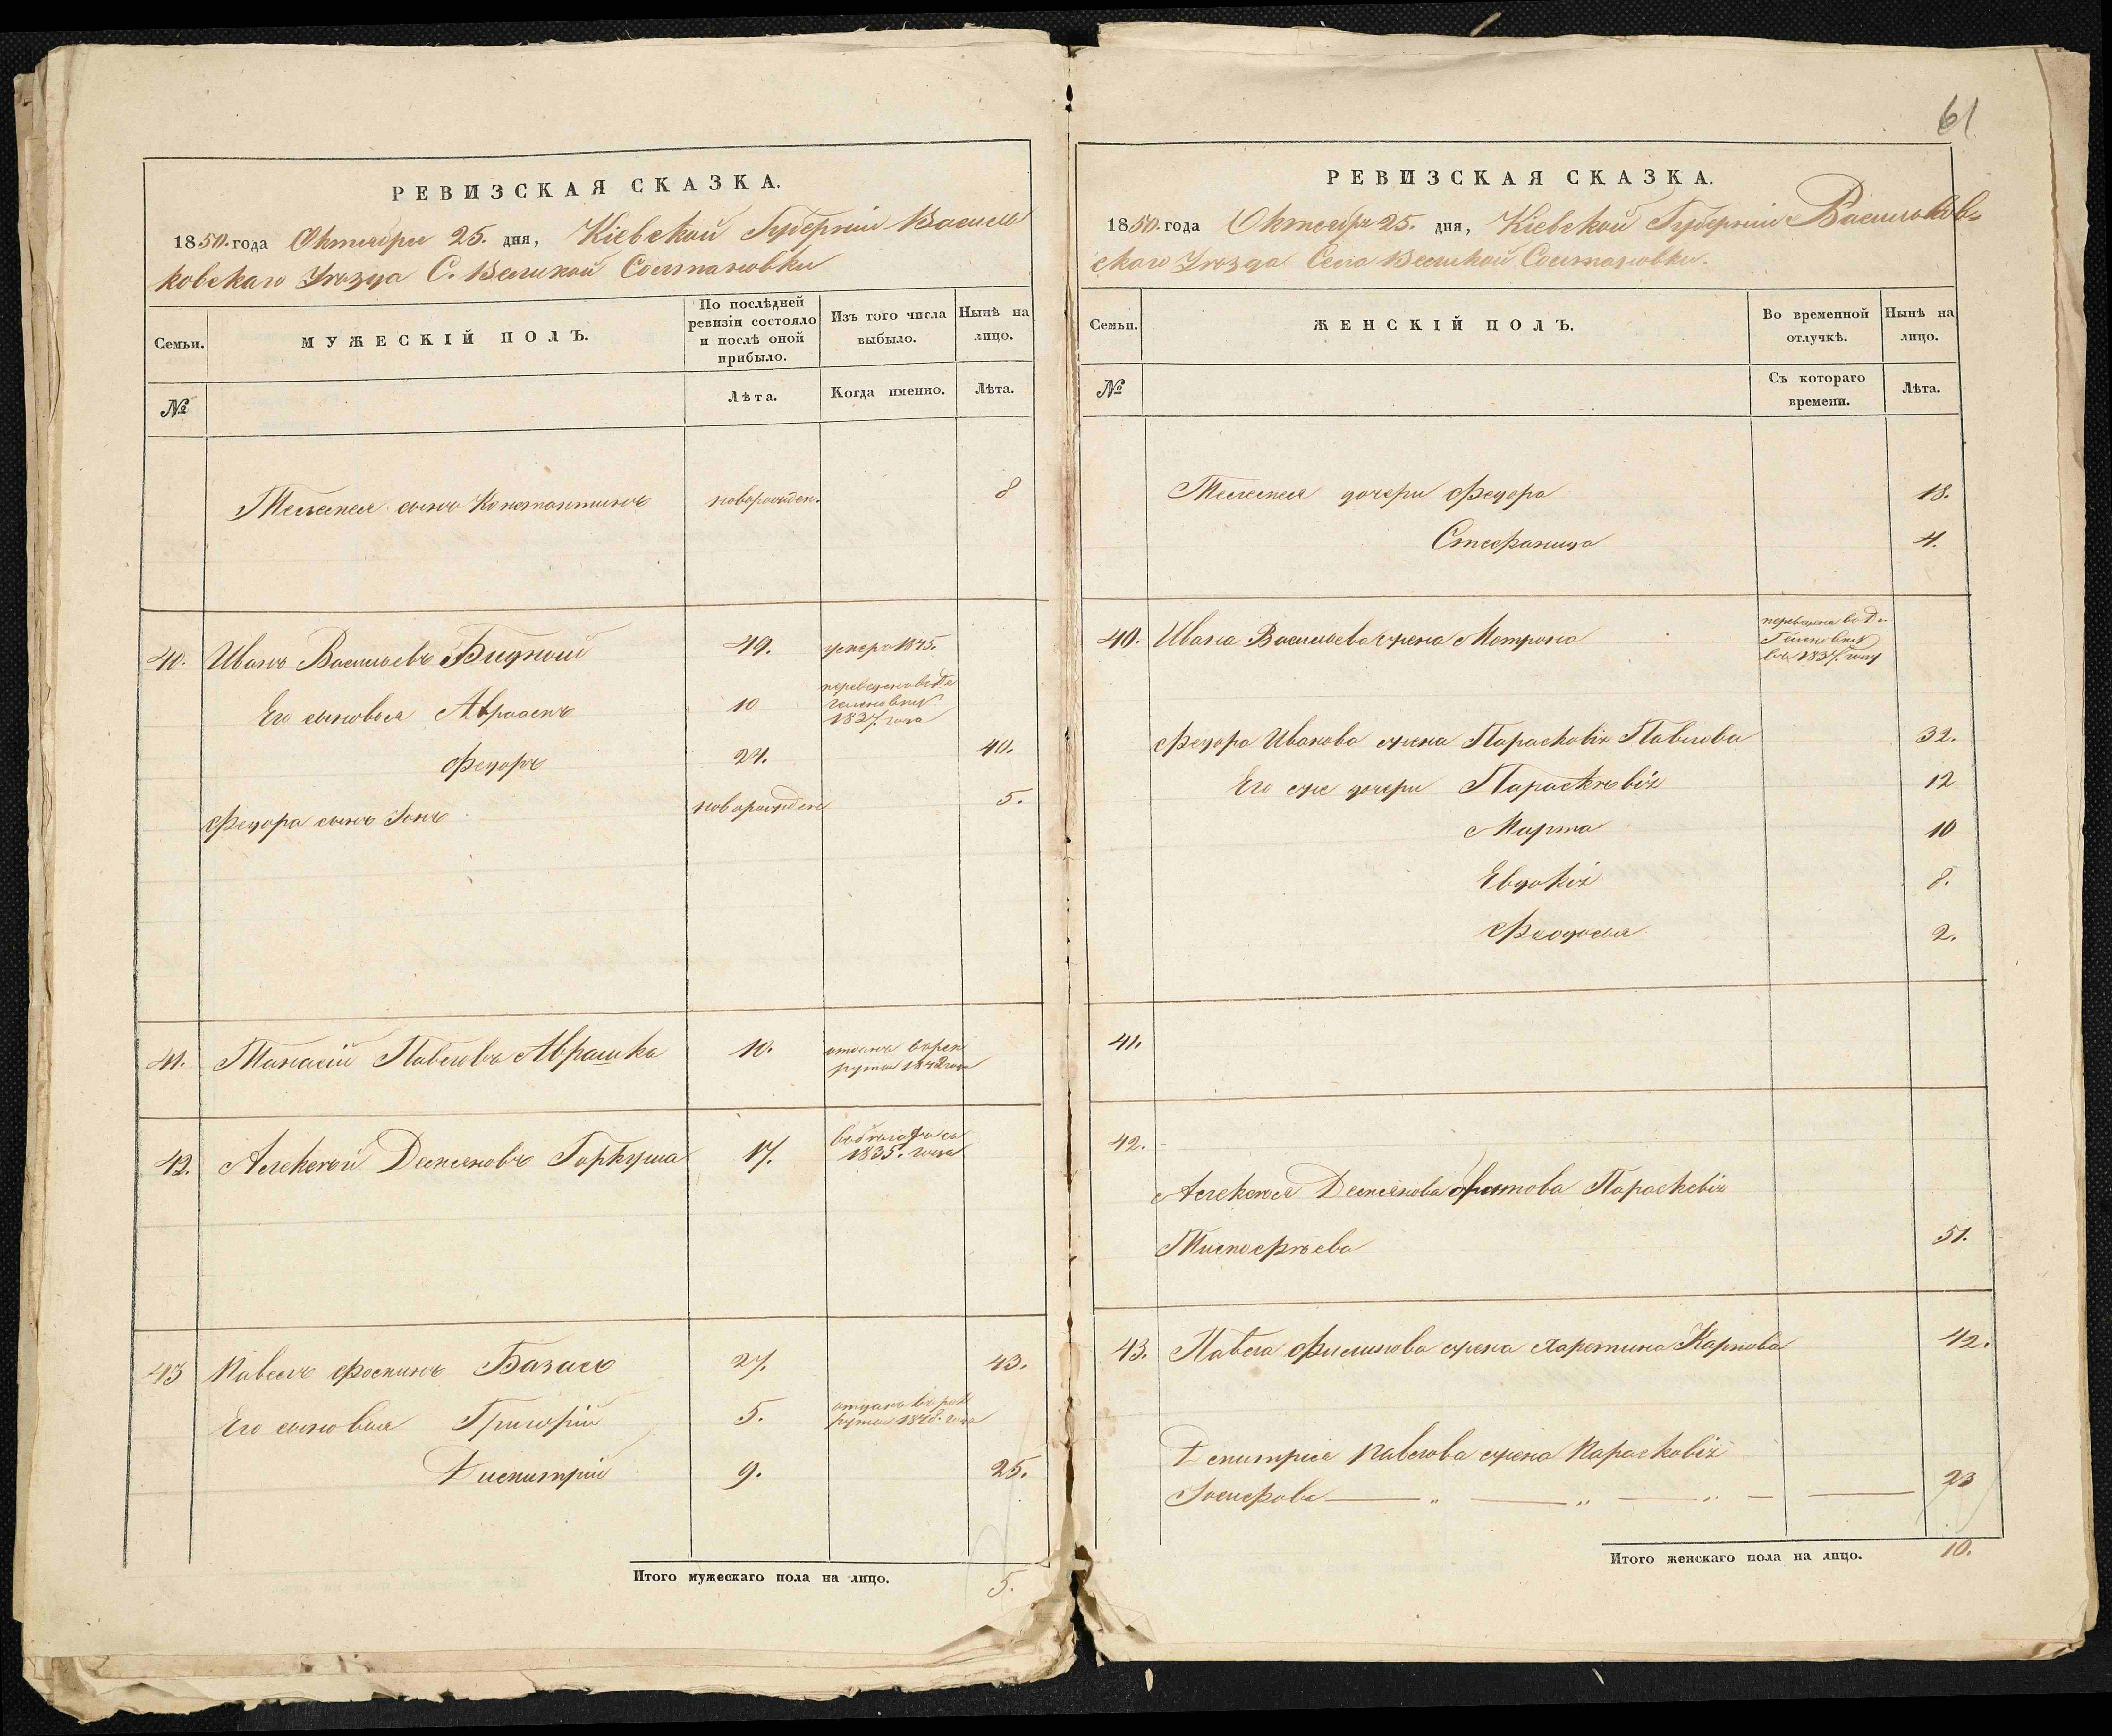 61
РЕВИЗСКАЯ СКАЗКА.
1850. года Октября 25. дня, Кіевской Губерніи Василь
ковскаго Уѣзда С. Великой Солтановки
Семьи.
МУЖЕСКІЙ ПОЛЪ.
По послѣдней ревизіи состояло и послѣ оной прибыло.
Изъ того числа выбыло.
Нынѣ на лицо.
№
Лѣта.
Когда именно.
Лѣта.
сынъ Константинъ новорожден. 8
40. Иванъ Васильевъ Бидный 49. умеръ 1845.
Его сыновья Авраамъ 10 переведенъ въ 1837. года
Федоръ 27. 40.
Федора сынъ новорожден 5.
41. Танасій Павловъ Аврашка 10. отданъ въ рек
руты года
42. Алексѣй Демьяновъ Гаркуша 17.
1835. года
43 Павелъ Базиль 27. 43.
Его сыновья Григорій 5. отданъ въ рек
руты 1848. года
Дмитрій 9. 25.
Итого мужескаго пола на лицо. 5.
РЕВИЗСКАЯ СКАЗКА.
1850. года Октября 25. дня, Кіевской Губерніи Васильков-
скаго Уѣзда Села Великой Солтановки.
Семьи.
ЖЕНСКІЙ ПОЛЪ.
Во временной отлучкѣ.
Нынѣ на лицо.
№
Съ котораго времени.
Лѣта.
дочери Федора 18.
Стефанида 4.
40. Ивана Васильева жена Мотрона переведена въ
въ 1837. году
Федора Иванова жена Парасковія Павлова 32.
Его же дочери Параскѣвія 12
Марта 10
Евдокія 8.
Феодосья 2.
41.
42.
Алексѣя Демьянова Параскевія
Тимофѣева 51.
43. Павла Филипова жена Харитина Карпова 42.
Дмитрія Павлова жена Парасковія
Іосифова 23
Итого женскаго пола на лицо. 10.